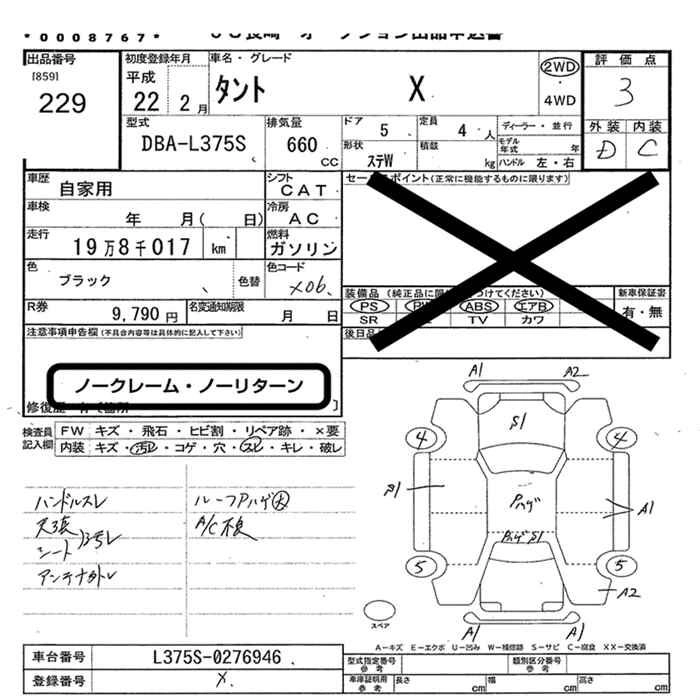 *0008767*
出品番号
[859]
229
初度登録年月
平成
22 2月
車名・グレード
タント X
2WD
4WD
評価点
3
外装 内装
D C
型式
DBA-L375S
排気量
660
CC
ドア
5
定員
4人
形状
ステW
積載
kg
ディーラー・並行
モデル年式 年
ハンドル 左・右
車歴
自家用
シフト
CAT
車検
年 月( 日)
冷房
AC
走行
19万8千017 km
燃料
ガソリン
色
ブラック
色替
色コード
X06.
R券
9,790円
名変通知期限
月 日
セー ポイント(正常に機能するものに限ります)
装備品
PS ABS エアB
SR TV カワ
新車保証書
有・無
注意事項申告欄(不具合内容等は具体的に記入して下さい)
ノークレーム・ノーリターン
検査員記入欄
FW キズ・飛石・ヒビ割・リペア跡・×要
内装 キズ・汚レ・コゲ・穴・スレ・キレ・破レ
ハンドルスレ
天張
シート 汚レ
アンテナ外レ
ルーフPハゲ大
A/C不良
A1 A2
S1
4 4
S1 Pハゲ A1
PハゲS1
5 5
A2
スペア
A1 A1
A-キズ E-エクボ U-凹み W-補修跡 S-サビ C-腐食 XX-交換済
車台番号
L375S-0276946
登録番号
X.
型式指定番号
参考
類別区分番号
参考
車庫証明用
参考
長さ cm 幅 cm 高さ cm